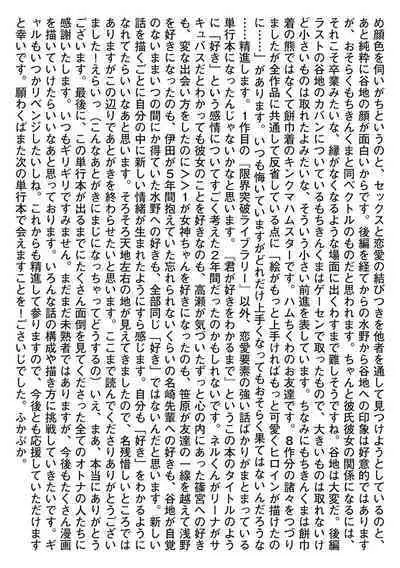 め顔色を伺いがちというのと、セックスと恋愛の結びつきを他者を通して見つけようとしているのと、
あと純粋に谷地の顔が面白いからです。後編を経てからの水野から谷地への印象は好意的ではあります
が、おそらくもちきんくまと同ベクトルのものだと思われます。ちゃんと彼氏彼女の関係になるには、
それこそ卒業みたいな、縁がなくなるような場面に出くわすまで難しそうですね。谷地は大変だ。後編
ラストの谷地のカバンについているもちきんくまはゲーセンで取ったもので、大きいものは取れないけ
ど小さいものは取れたよみたいな、そういう小さい前進を表しています。ちなみにもちきんくまは餅巾
着の熊ではなくて餅巾着のキンクマハムスターです。ハムちくわのお友達です。8作分の諸々をつづり
ましたが全作品に共通して反省している点に「絵がもっと上手ければもっと可愛くヒロインが描けたの
に……」があります。いつも悔いていますがどれだけ上手くなってもおそらく果てはないんだろうな
……精進します。1作目の「限界突破ライブラリー」以外、恋愛要素の強い話ばかりがまとまっている
単行本になったんじゃないかなと思います。「君が好きをわかるまで」というこの本のタイトルのよう
に「好き」という感情についてすごく考えた2年間だったのかもしれないです。ネルくんがリーナがサ
キュバスだとわかっても彼女のことを好きなのも、高瀬が気づいたずっと心の内にあった篠宮への好き
も、変な出会い方をしたのに>>1が女神ちゃんを好きになったのも、笹原が友達の一線を越えて浅野
を好きになったのも、伊田が5年間抱えていた忘れられないくらいの名崎先輩への好きも、谷地が自覚
のないままいつの間にか得ていた水野への好きも、全部同じ「好き」ではないんだと思います。新しい
話を描くごとに自分の中に新しい情緒が生まれたようにすら感じます。自分も「好き」をわかるように
なれてたらいいなあと思います。そろそろ天地左右の地が見えてきましたので、名残惜しいところでは
ありますがこの辺りであとがきを終わらせたいと思います。ここまで読んでくださりありがとうござい
ました！えらいっ（こんなあとがきにまじになっちゃってどうするの）いえ、まあ、本当にありがとう
ございます。最後に、この単行本が出るまでにたくさん面倒を見てくださった全てのオトナの人たちに
感謝いたします。いつもギリギリですみません。まだまだ未熟者ではありますが、今後もたくさん漫画
を描いていけたらいいなあと思っております。いろんな話の構成や描き方に挑戦していきたいです。ギ
ャルもいつかリベンジしたいしね。これからも精進して参りますので、今後とも応援していただけます
と幸いです。願わくばまた次の単行本で会えますことを！ごさいじでした。ふかぶか。